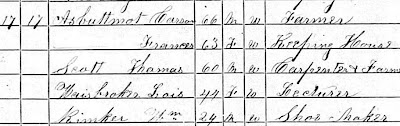 17 17 Asbuttmot Carson 66 M W Farmer
Frances 63 F W Keeping House
Scott Thomas 60 M W Carpenter & Farm
Waisbroker Lois 44 F W Lecturer
Rimker Wm 24 M W Shoe Maker